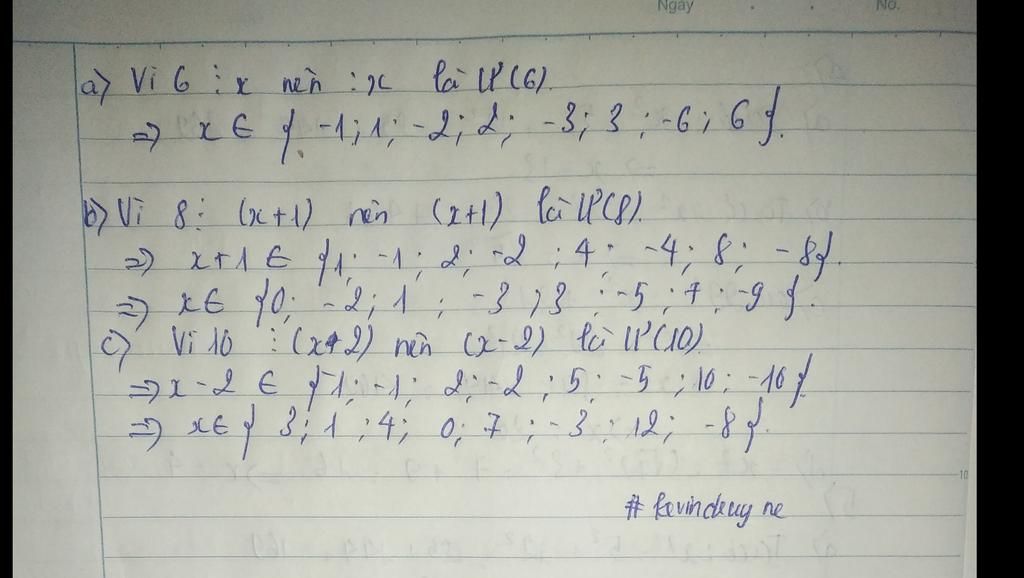 Ngày . . No.
a) Vì 6 ⋮ x nên : x là Ư(6).
=> x ∈ { -1; 1; -2; 2; -3; 3; -6; 6 }.
b) Vì 8 ⋮ (x+1) nên (x+1) là Ư(8).
=> x+1 ∈ {1; -1; 2; -2; 4; -4; 8; -8}.
=> x ∈ {0; -2; 1; -3; 3; -5; 7; -9}.
c) Vì 10 ⋮ (x-2) nên (x-2) là Ư(10).
=> x-2 ∈ {1; -1; 2; -2; 5; -5; 10; -10}
=> x ∈ { 3; 1; 4; 0; 7; -3; 12; -8}.
10
# kevinduy ne